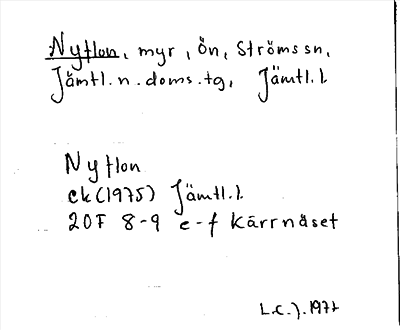 Nyflon, myr, ön, Ströms sn,
Jämtl.n.doms.tg, Jämtl.l.
Nyflon
ek(1975) Jämtl.l.
20F 8-9 e-f Kärrnäset
L.C.J. 1977